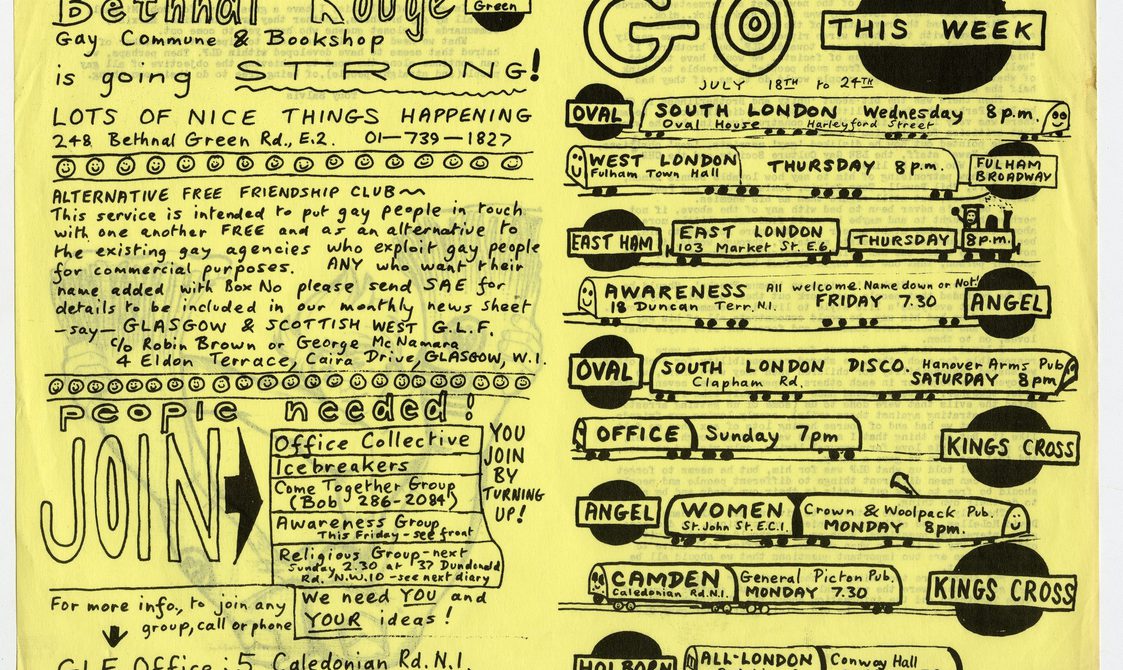 Bethnal Rouge
Green
Gay Commune & Bookshop
is going STRONG!
LOTS OF NICE THINGS HAPPENING
248 Bethnal Green Rd., E.2. 01-739-1827
ALTERNATIVE FREE FRIENDSHIP CLUB~
This service is intended to put gay people in touch
with one another FREE and as an alternative to
the existing gay agencies who exploit gay people
for commercial purposes. ANY who want their
name added with Box No please send SAE for
details to be included in our monthly news sheet
-say- GLASGOW & SCOTTISH WEST G.L.F.
c/o Robin Brown or George McNamara
4 Eldon Terrace, Caira Drive, GLASGOW, W.1.
people needed!
JOIN
Office Collective
Icebreakers
Come Together Group
(Bob 286-2084)
Awareness Group
This Friday - see front
Religious Group-next
Sunday 2.30 at 37 Dundonald
Rd, N.W.10 - see next diary
YOU
JOIN
BY
TURNING
UP!
We need YOU and
YOUR ideas!
For more info., to join any
group, call or phone
GLF Office: 5 Caledonian Rd. N.1.
GO
THIS WEEK
JULY 18TH to 24TH
OVAL
SOUTH LONDON Wednesday 8 p.m.
Oval House Harleyford Street
WEST LONDON THURSDAY 8 p.m.
Fulham Town Hall
FULHAM
BROADWAY
EAST HAM
EAST LONDON THURSDAY 8 p.m.
103 Market St. E.6.
AWARENESS All welcome. Name down or Not!
18 Duncan Terr. N.1. FRIDAY 7.30
ANGEL
OVAL
SOUTH LONDON DISCO. Hanover Arms Pub
Clapham Rd. SATURDAY 8 pm
OFFICE Sunday 7pm
KINGS CROSS
ANGEL
WOMEN Crown & Woolpack Pub.
St. John St. E.C.1. MONDAY 8pm.
CAMDEN General Picton Pub.
Caledonian Rd. N.1. MONDAY 7.30
KINGS CROSS
HOLBORN
ALL-LONDON Conway Hall